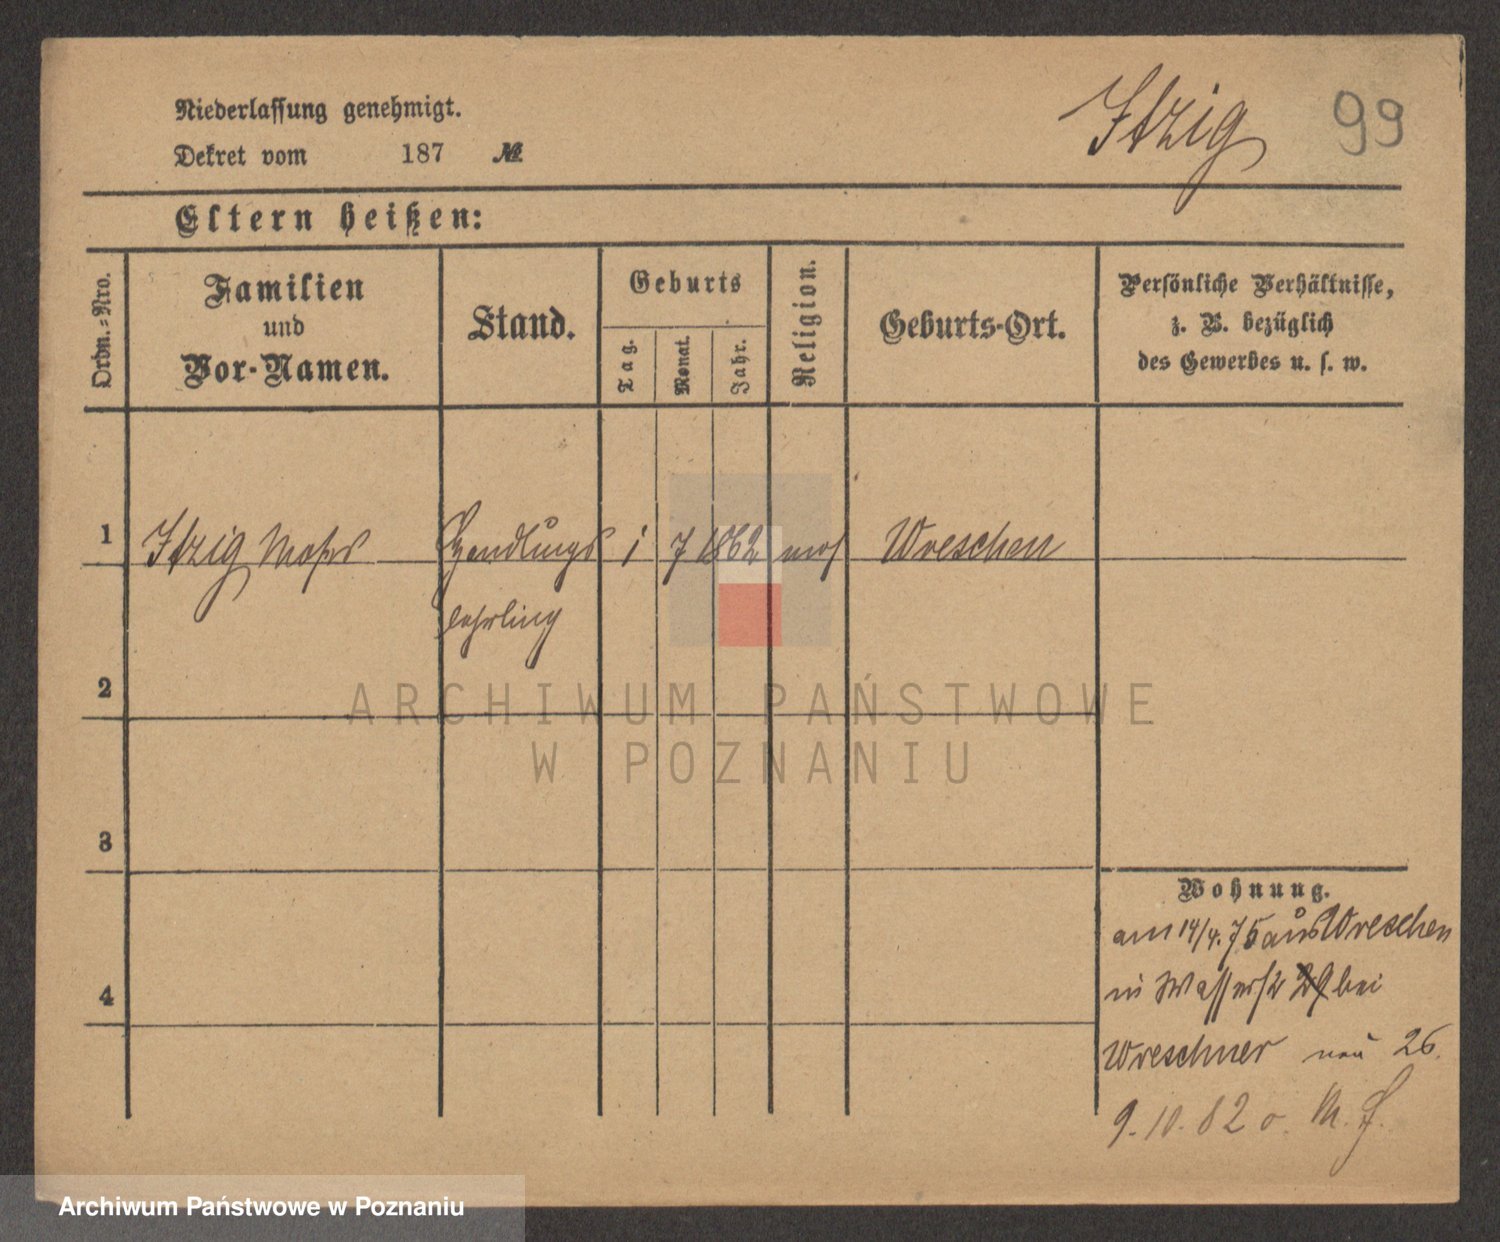 Itzig 99
Niederlassung genehmigt.
Dekret vom 187 №
Eltern heißen:
Ordn.-Nro.
Familien
und
Vor-Namen.
Stand.
Geburts
Tag.
Monat.
Jahr.
Religion.
Geburts-Ort.
Persönliche Verhältnisse,
z. B. bezüglich
des Gewerbes u. s. w.
1 Itzig Handlungs 1 7 1862 mos Wreschen
lehrling
2
3
4
Wohnung.
am 14/4. 75 aus Wreschen
in Wasserstr 29 bei
Wreschner neu 26.
9.10.82 o.
ARCHIWUM PAŃSTWOWE
W POZNANIU
Archiwum Państwowe w Poznaniu